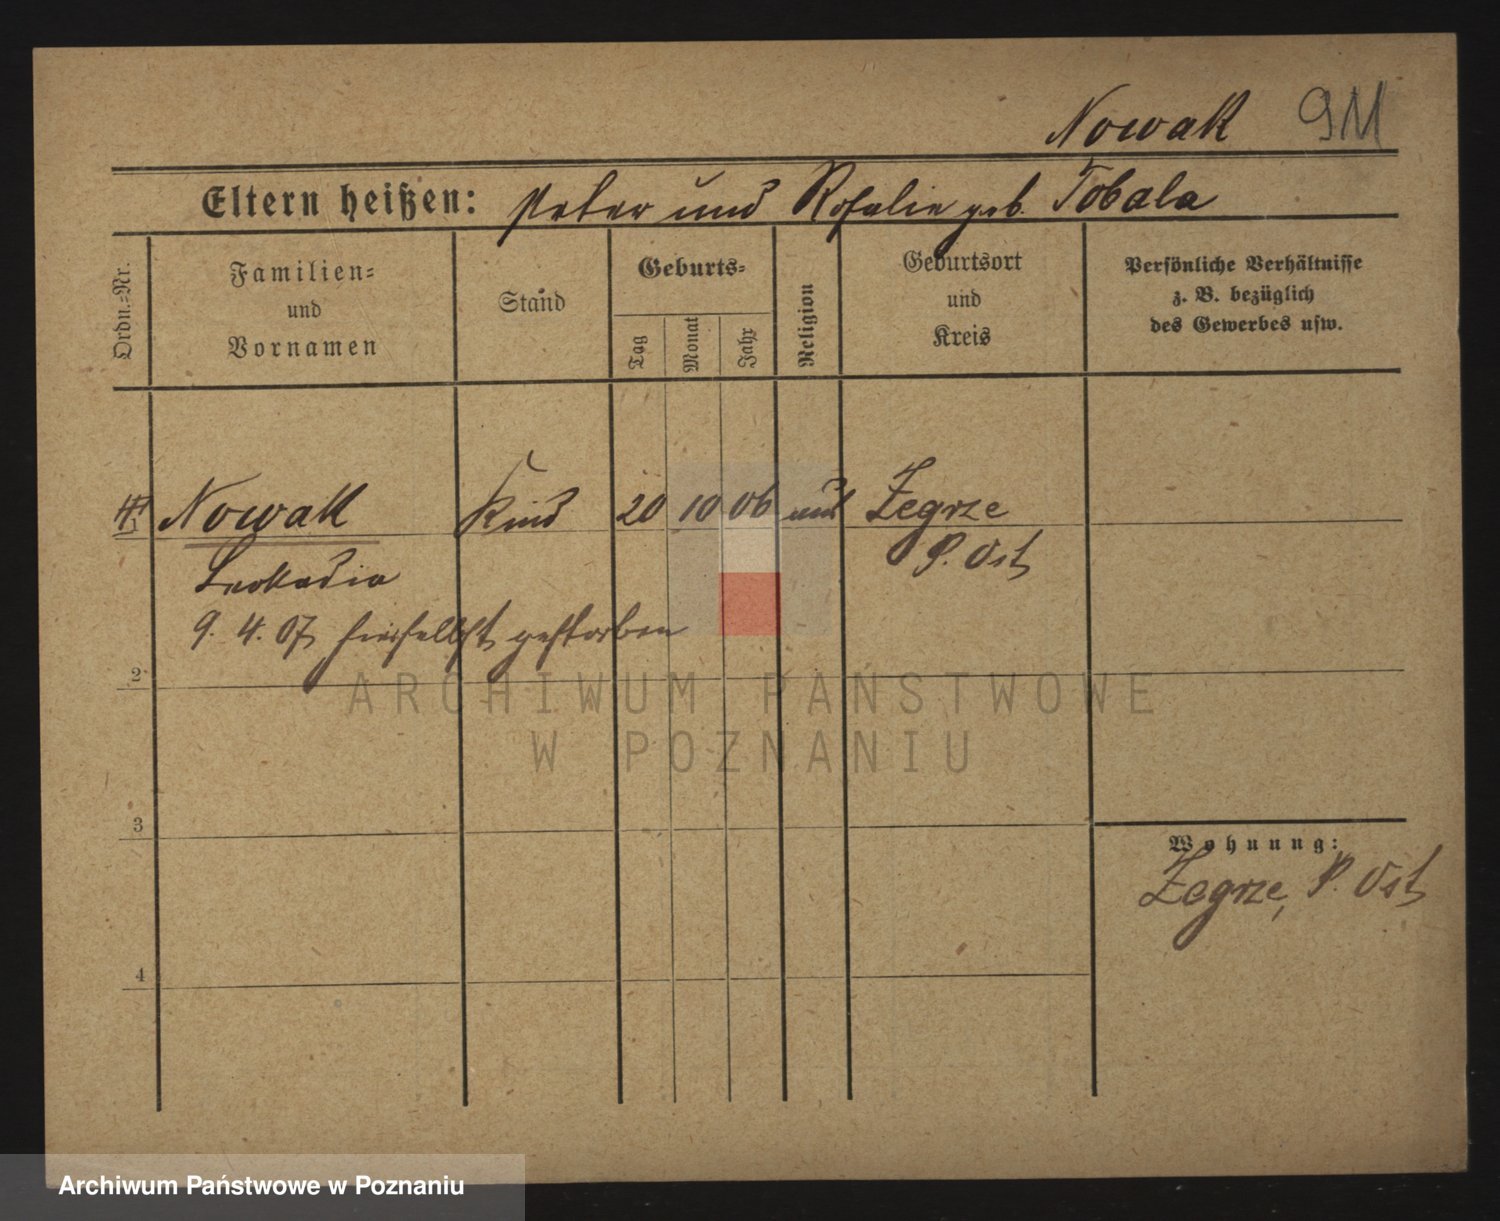 Nowak 911
Eltern heißen: Peter und Rosalie geb. Tobala
Ordn.-Nr.
Familien-
und
Vornamen
Stand
Geburts-
Tag
Monat
Jahr
Religion
Geburtsort
und
Kreis
Persönliche Verhältnisse
z. B. bezüglich
des Gewerbes usw.
Nowak Kind 20 10 06 Zegrze
Leokadia P. Ost
9. 4. 07 hierselbst gestorben
2
3
4
Wohnung:
Zegrze, P. Ost
ARCHIWUM PAŃSTWOWE
W POZNANIU
Archiwum Państwowe w Poznaniu